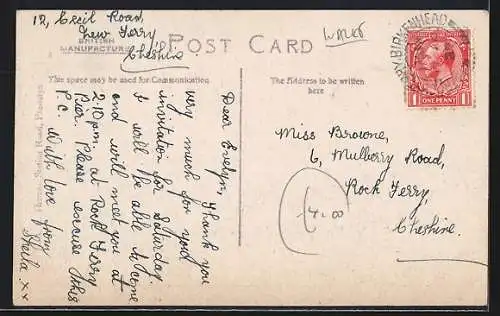 12, Cecil Road,
New Ferry
Cheshire
BRITISH
MANUFACTURE
POST CARD
This space may be used for Communication.
The Address to be written
here
BIRKENHEAD
ONE PENNY
1 1
Dear Evelyn, Thank you
very much for your
invitation for Saturday.
I will be able to come
and will meet you at
2.10 p.m. at Rock Ferry
Pier. Please excuse this
P.C. With love from
Sheila xx
Miss Browne,
6, Mulberry Road,
Rock Ferry,
Cheshire.
4.00